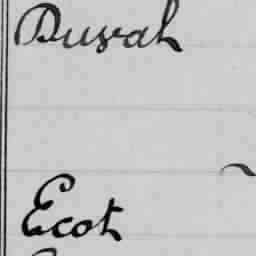 Duval
Ecot